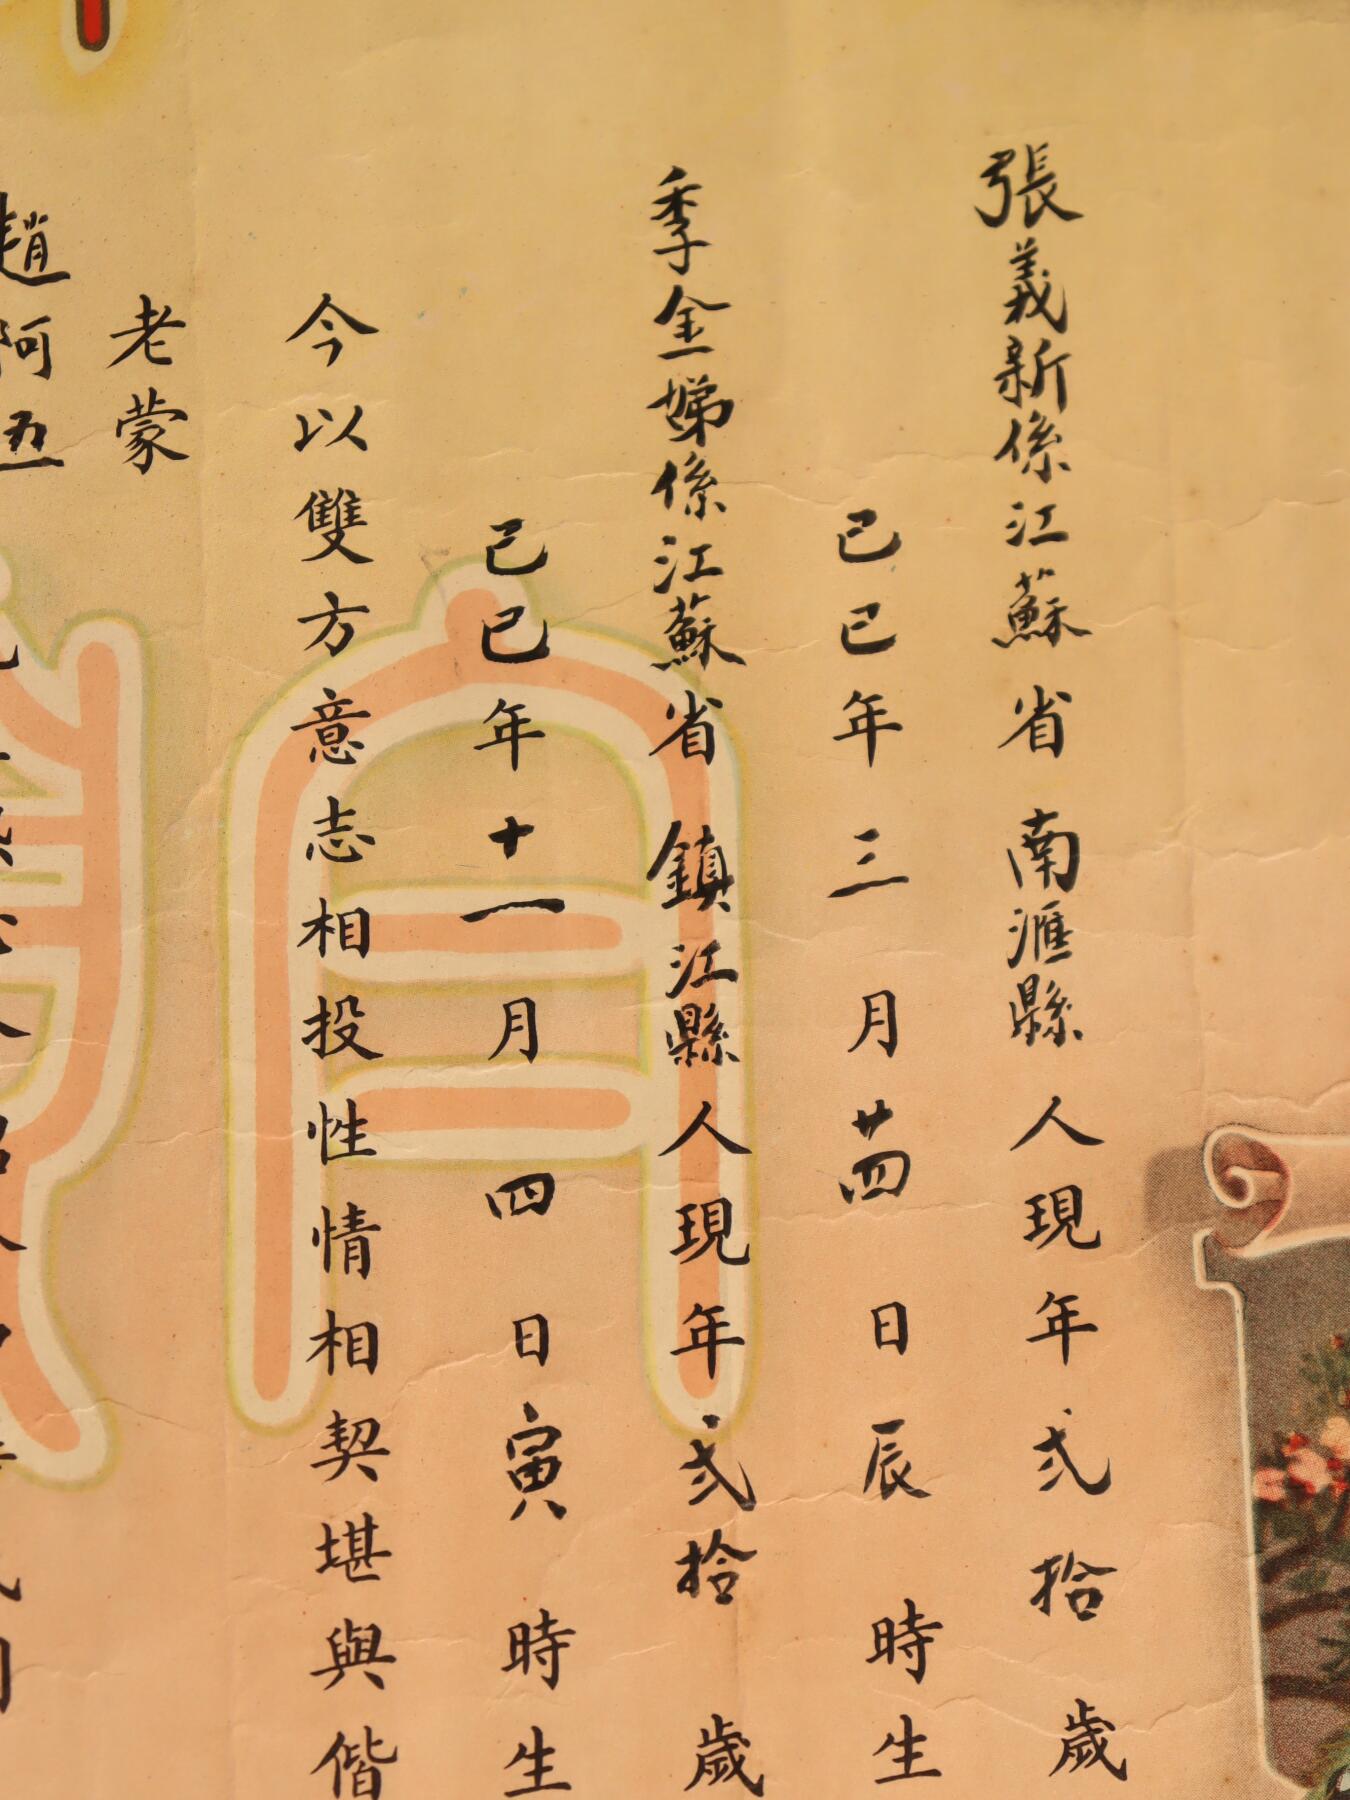 張義新係江蘇省南滙縣人現年弍拾歲
己巳年三月廿四日辰時生
季金娣係江蘇省鎮江縣人現年弍拾歲
己巳年十一月四日寅時生
今以雙方意志相投性情相契堪與偕
老蒙
趙阿五